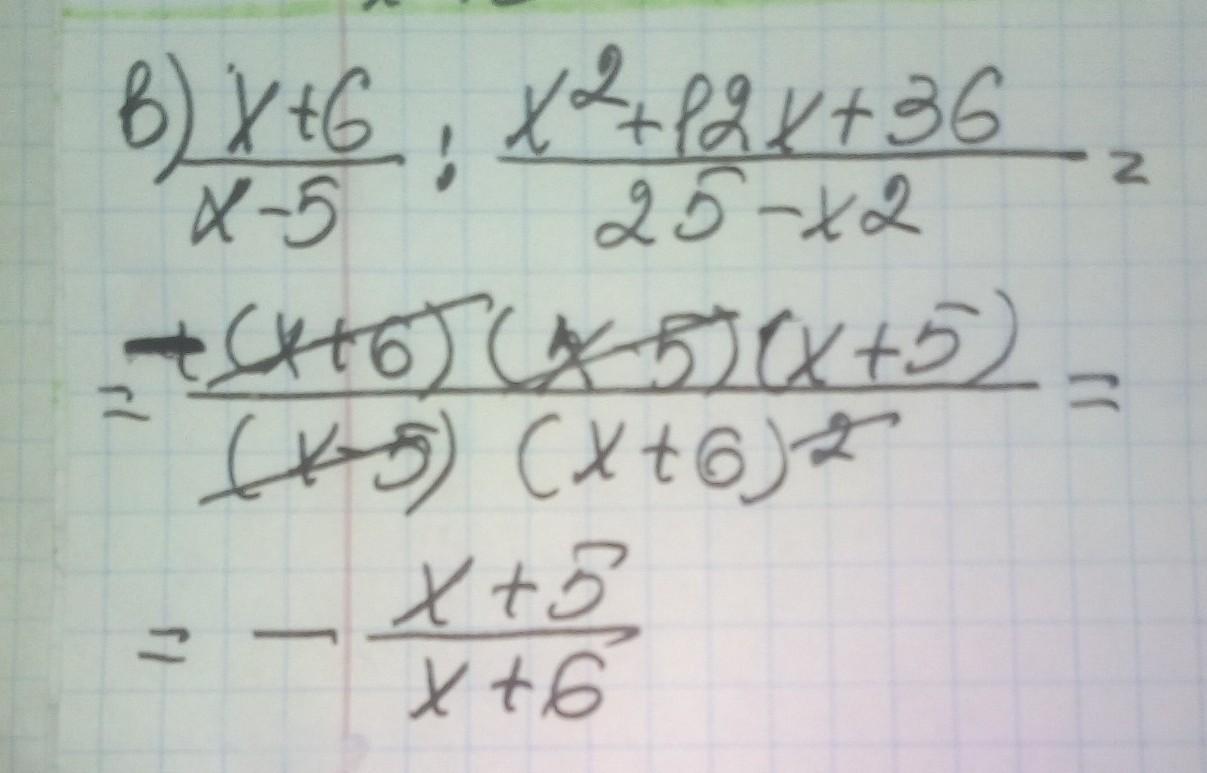 в) x+6/x-5 : x²+12x+36/25-x2 =
= -(x+6)(x-5)(x+5)/(x-5)(x+6)² =
= - x+5/x+6